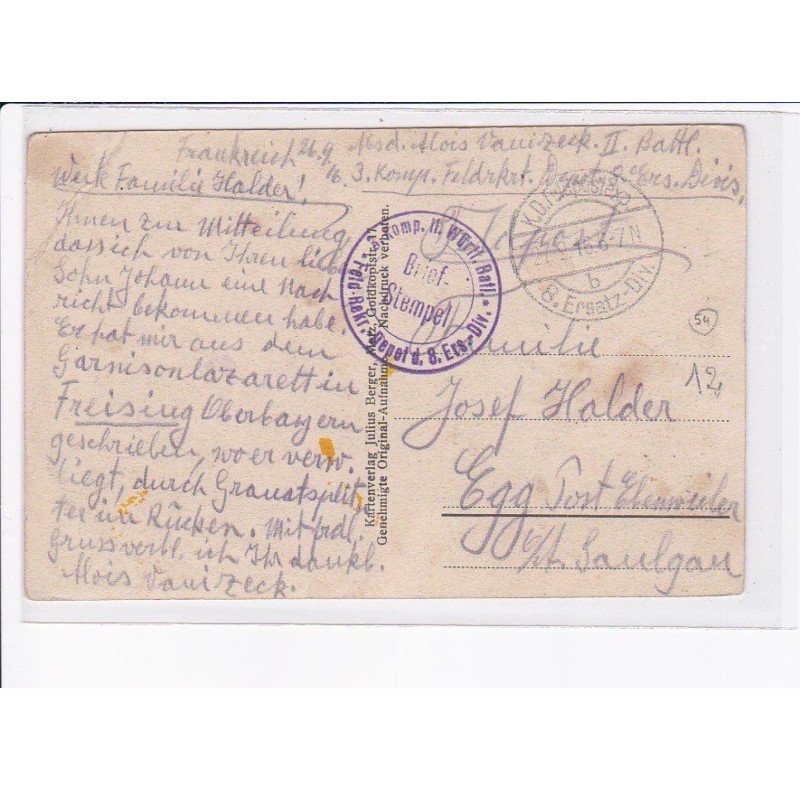 Frankreich 26.9. Absd. Alois Vanizeck. II. Battl.
3. Komp. Feldrkrt. Depot 8. Ers. Divis.
Familie Halder!
Ihnen zur Mitteilung
dass ich von Ihren lieb
Sohn Johann eine Nach
richt bekommen habe.
Er hat mir aus dem
Garnisonlazarett in
Freising Oberbayern
geschrieben, wo er verw.
liegt, durch Granatsplit
ter im Rücken. Mit frdl.
Gruss verbl. ich Ihr dankb.
Alois Vanizeck.
Kartenverlag Julius Berger, Metz, Goldkopfstr. 17.
Genehmigte Original-Aufnahme. Nachdruck verboten.
Komp. II. Württ. Batl.
Feld-Rekr.-Depot d. 8. Ers.-Div.
Brief-
Stempel
7-N
b
8. Ersatz-Div.
Familie
Josef Halder
Egg Post Ebenweiler
Saulgau
54
12